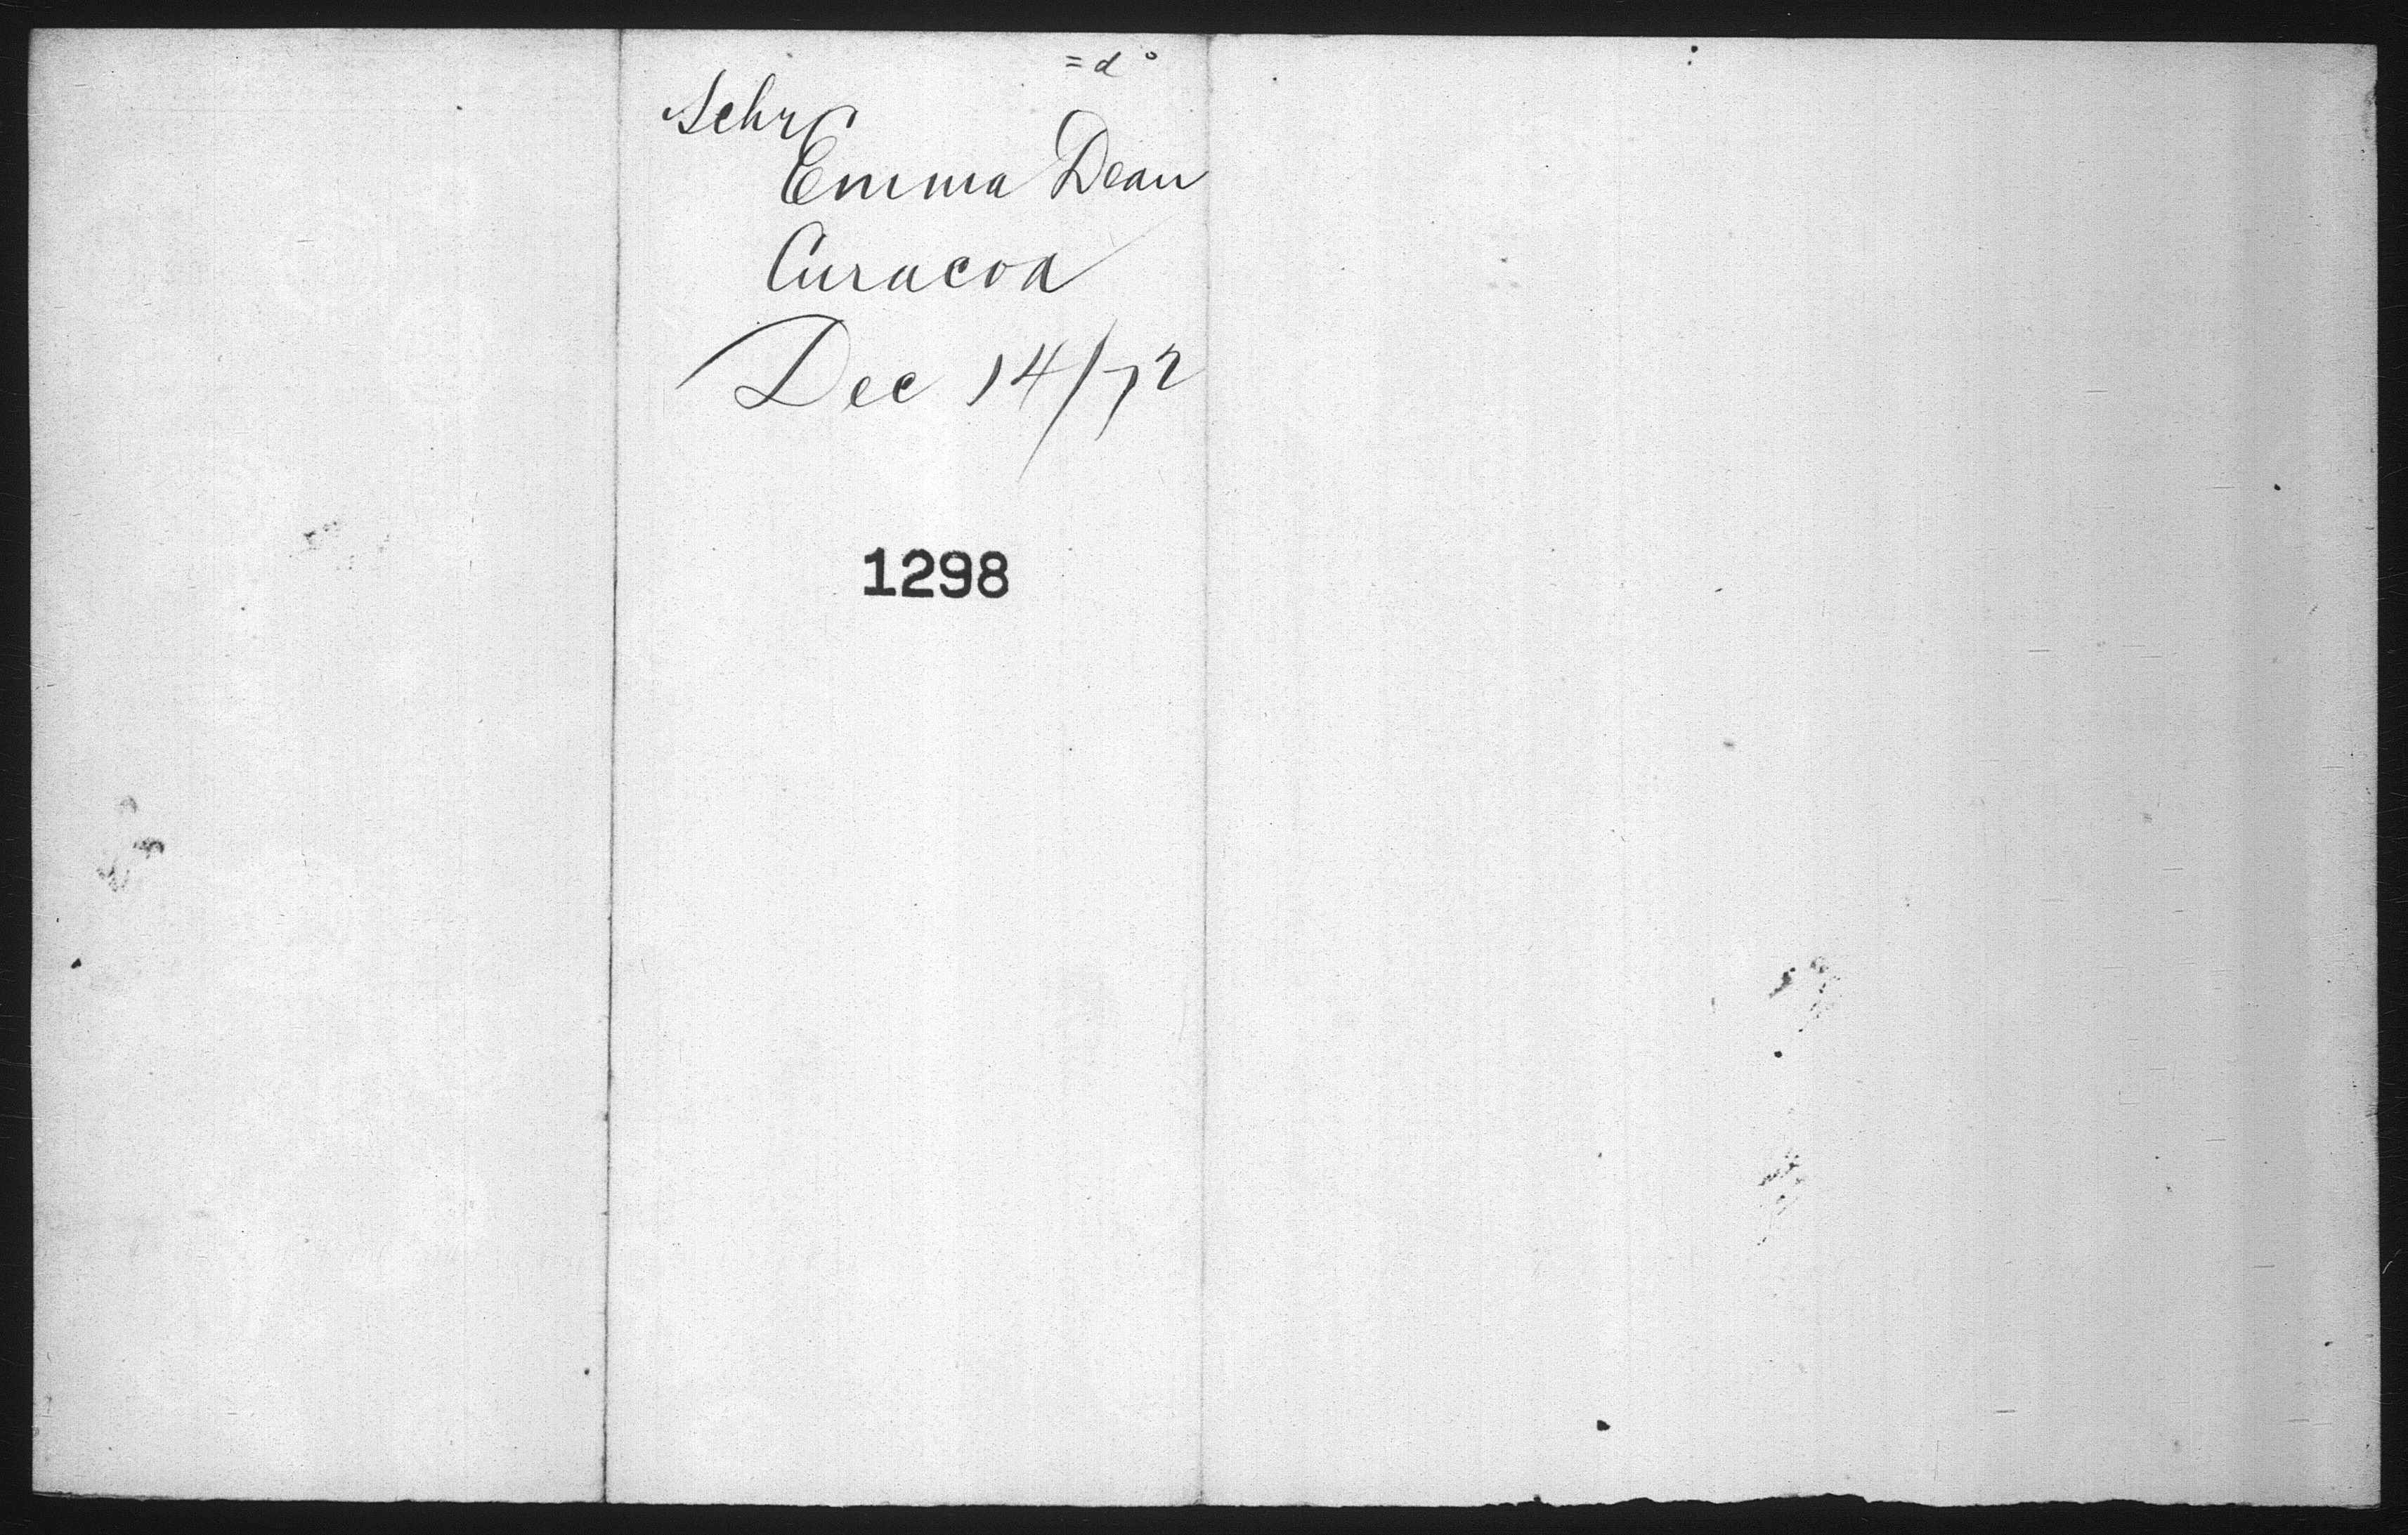 = do
Schr
Emma Dean
Curacoa
Dec 14/72
1298